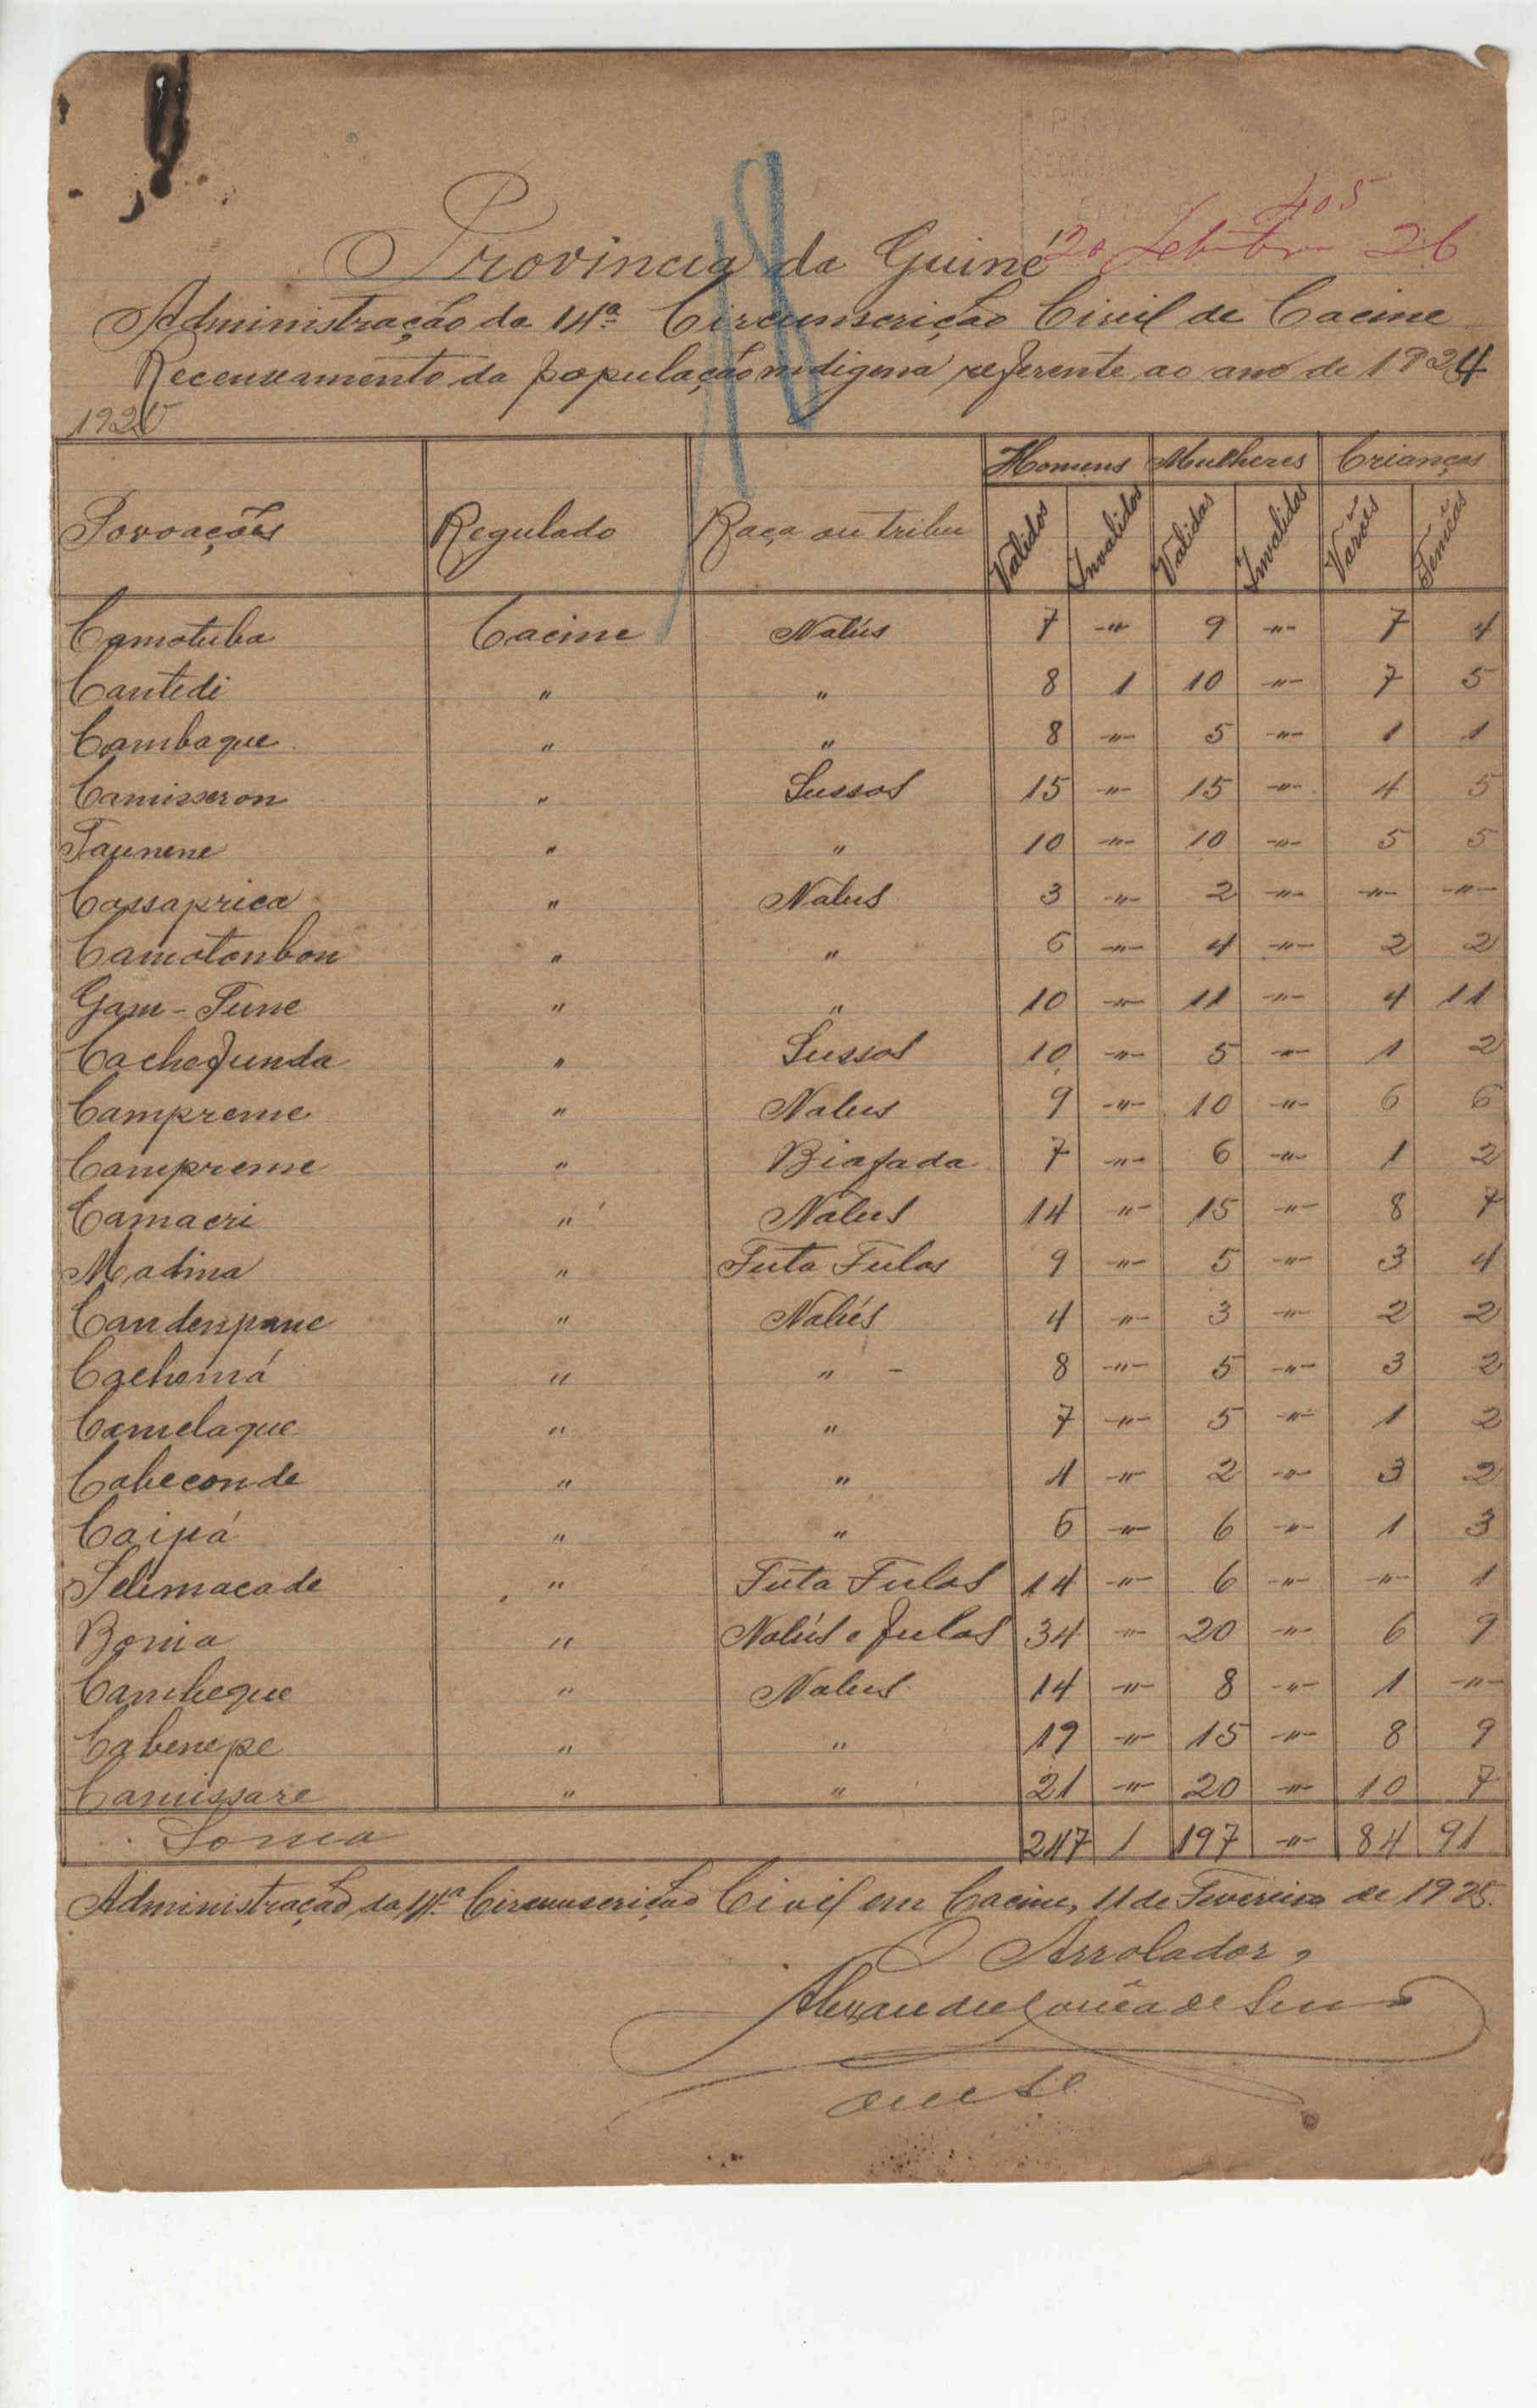 405
Provincia da Guiné 20 26
Administração da 14ª Circunscrição Civil de Cacine
Recenseamento da população indigena referente ao ano de 1924
192
Homens Mulheres Crianças
Povoações Regulado Raça ou tribu Validos Invalidos Validas Invalidas Varões Femeas
Camotuba Cacine Nalús 7 -"- 9 -"- 7 4
Cantedi " " 8 1 10 -"- 7 5
Cambaque " " 8 -"- 5 -"- 1 1
Camisseron " Sussos 15 -"- 15 -"- 4 5
Taunene " " 10 -"- 10 -"- 5 5
Cassaprica " Nalus 3 -"- 2 -"- -"- -"-
Camotonbon " " 6 -"- 4 -"- 2 2
Gam-Tune " " 10 -"- 11 -"- 4 11
Cachefunda " Sussos 10 -"- 5 -"- 1 2
Campreme " Nalus 9 -"- 10 -"- 6 6
Campreme " Biafada 7 -"- 6 -"- 1 2
Camacri " Nalus 14 -"- 15 -"- 8 7
Madina " Futa Fulas 9 -"- 5 -"- 3 4
Candenpane " Nalús 4 -"- 3 -"- 2 2
Cachamá " " - 8 -"- 5 -"- 3 2
Camelaque " " 7 -"- 5 -"- 1 2
Cabeconde " " 4 -"- 2 -"- 3 2
Caipá " " 6 -"- 6 -"- 1 3
Selimacade " Futa Fulas 14 -"- 6 -"- -"- 1
Bomia " Nalús e fulas 34 -"- 20 -"- 6 9
Cambeque " Nalus 14 -"- 8 -"- 1 -"-
Cabenepe " " 19 -"- 15 -"- 8 9
Camissare " " 21 -"- 20 -"- 10 7
Soma 247 1 197 -"- 84 91
Administração da 14ª Circunscrição Civil em Cacine, 11 de Fevereiro de 1925.
O Arrolador,